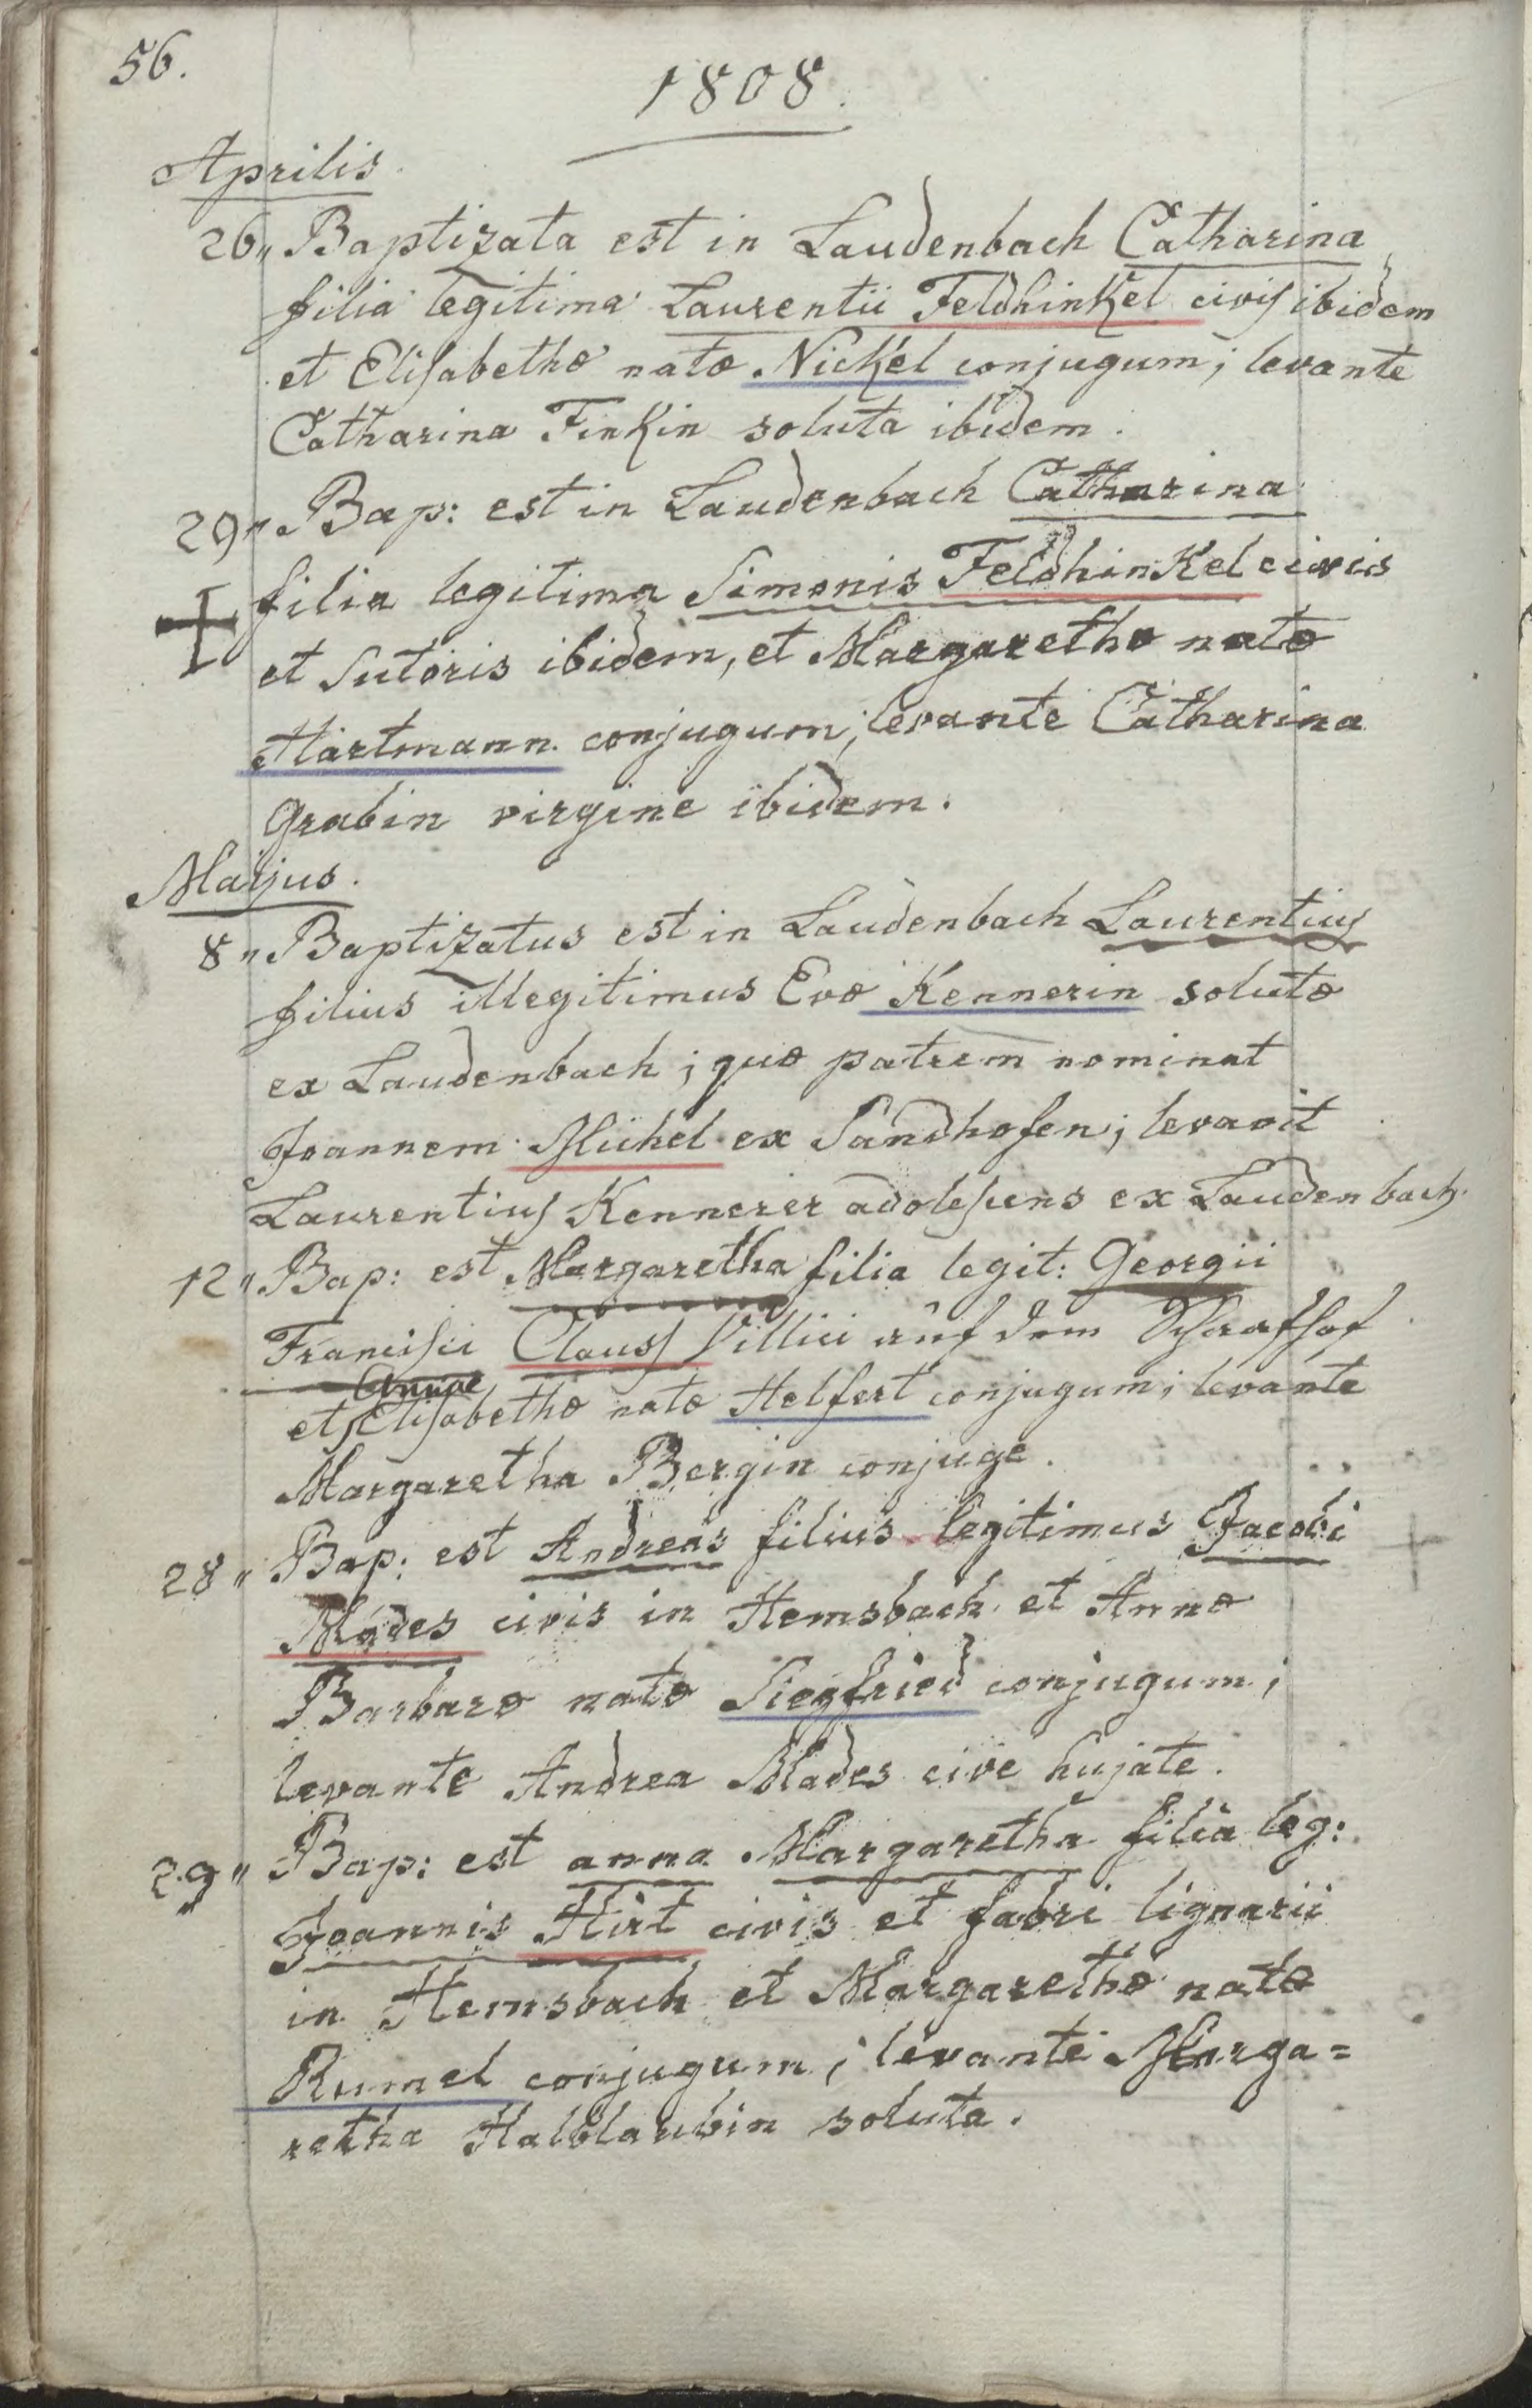 56.
1808.
Aprilis.
26„ Baptizata est in Laudenbach Catharina
filia legitima Laurentii Feldhinkel civis ibidem
et Elisabethæ natæ Nickel conjugum; levante
Catharina Finkin soluta ibidem.
29„ Bap: est in Laudenbach Catharina
filia legitima Simonis Feldhinkel civis
et Sutoris ibidem, et Margarethæ natæ
Hartmann conjugum; levante Catharina
Grabin virgine ibidem.
Maijus.
8„ Baptizatus est in Laudenbach Laurentius
filius illegitimus Evæ Kennerin solutæ
ex Laudenbach; quæ patrem nominat
Joannem Michel ex Sandhofen; levavit
Laurentius Kennerer adolescens ex Laudenbach.
12„ Bap: est Margaretha filia legit: Georgii
Francisci Clauss Villici auf dem Schafhof
Annae
et Elisabethæ natæ Helfert conjugum; levante
Margaretha Bergin conjuge.
28„ Bap: est Andreas filius legitimus Jacobi
Mades civis in Hemsbach et Annæ
Barbaræ natæ Siegfried conjugum;
levante Andrea Mades cive hujate.
29„ Bap: est anna Margaretha filia leg:
Joannis Hirt civis et fabri lignarii
in Hemsbach et Margarethæ natæ
Rumel conjugum; levante Marga=
retha Halblaubin soluta.